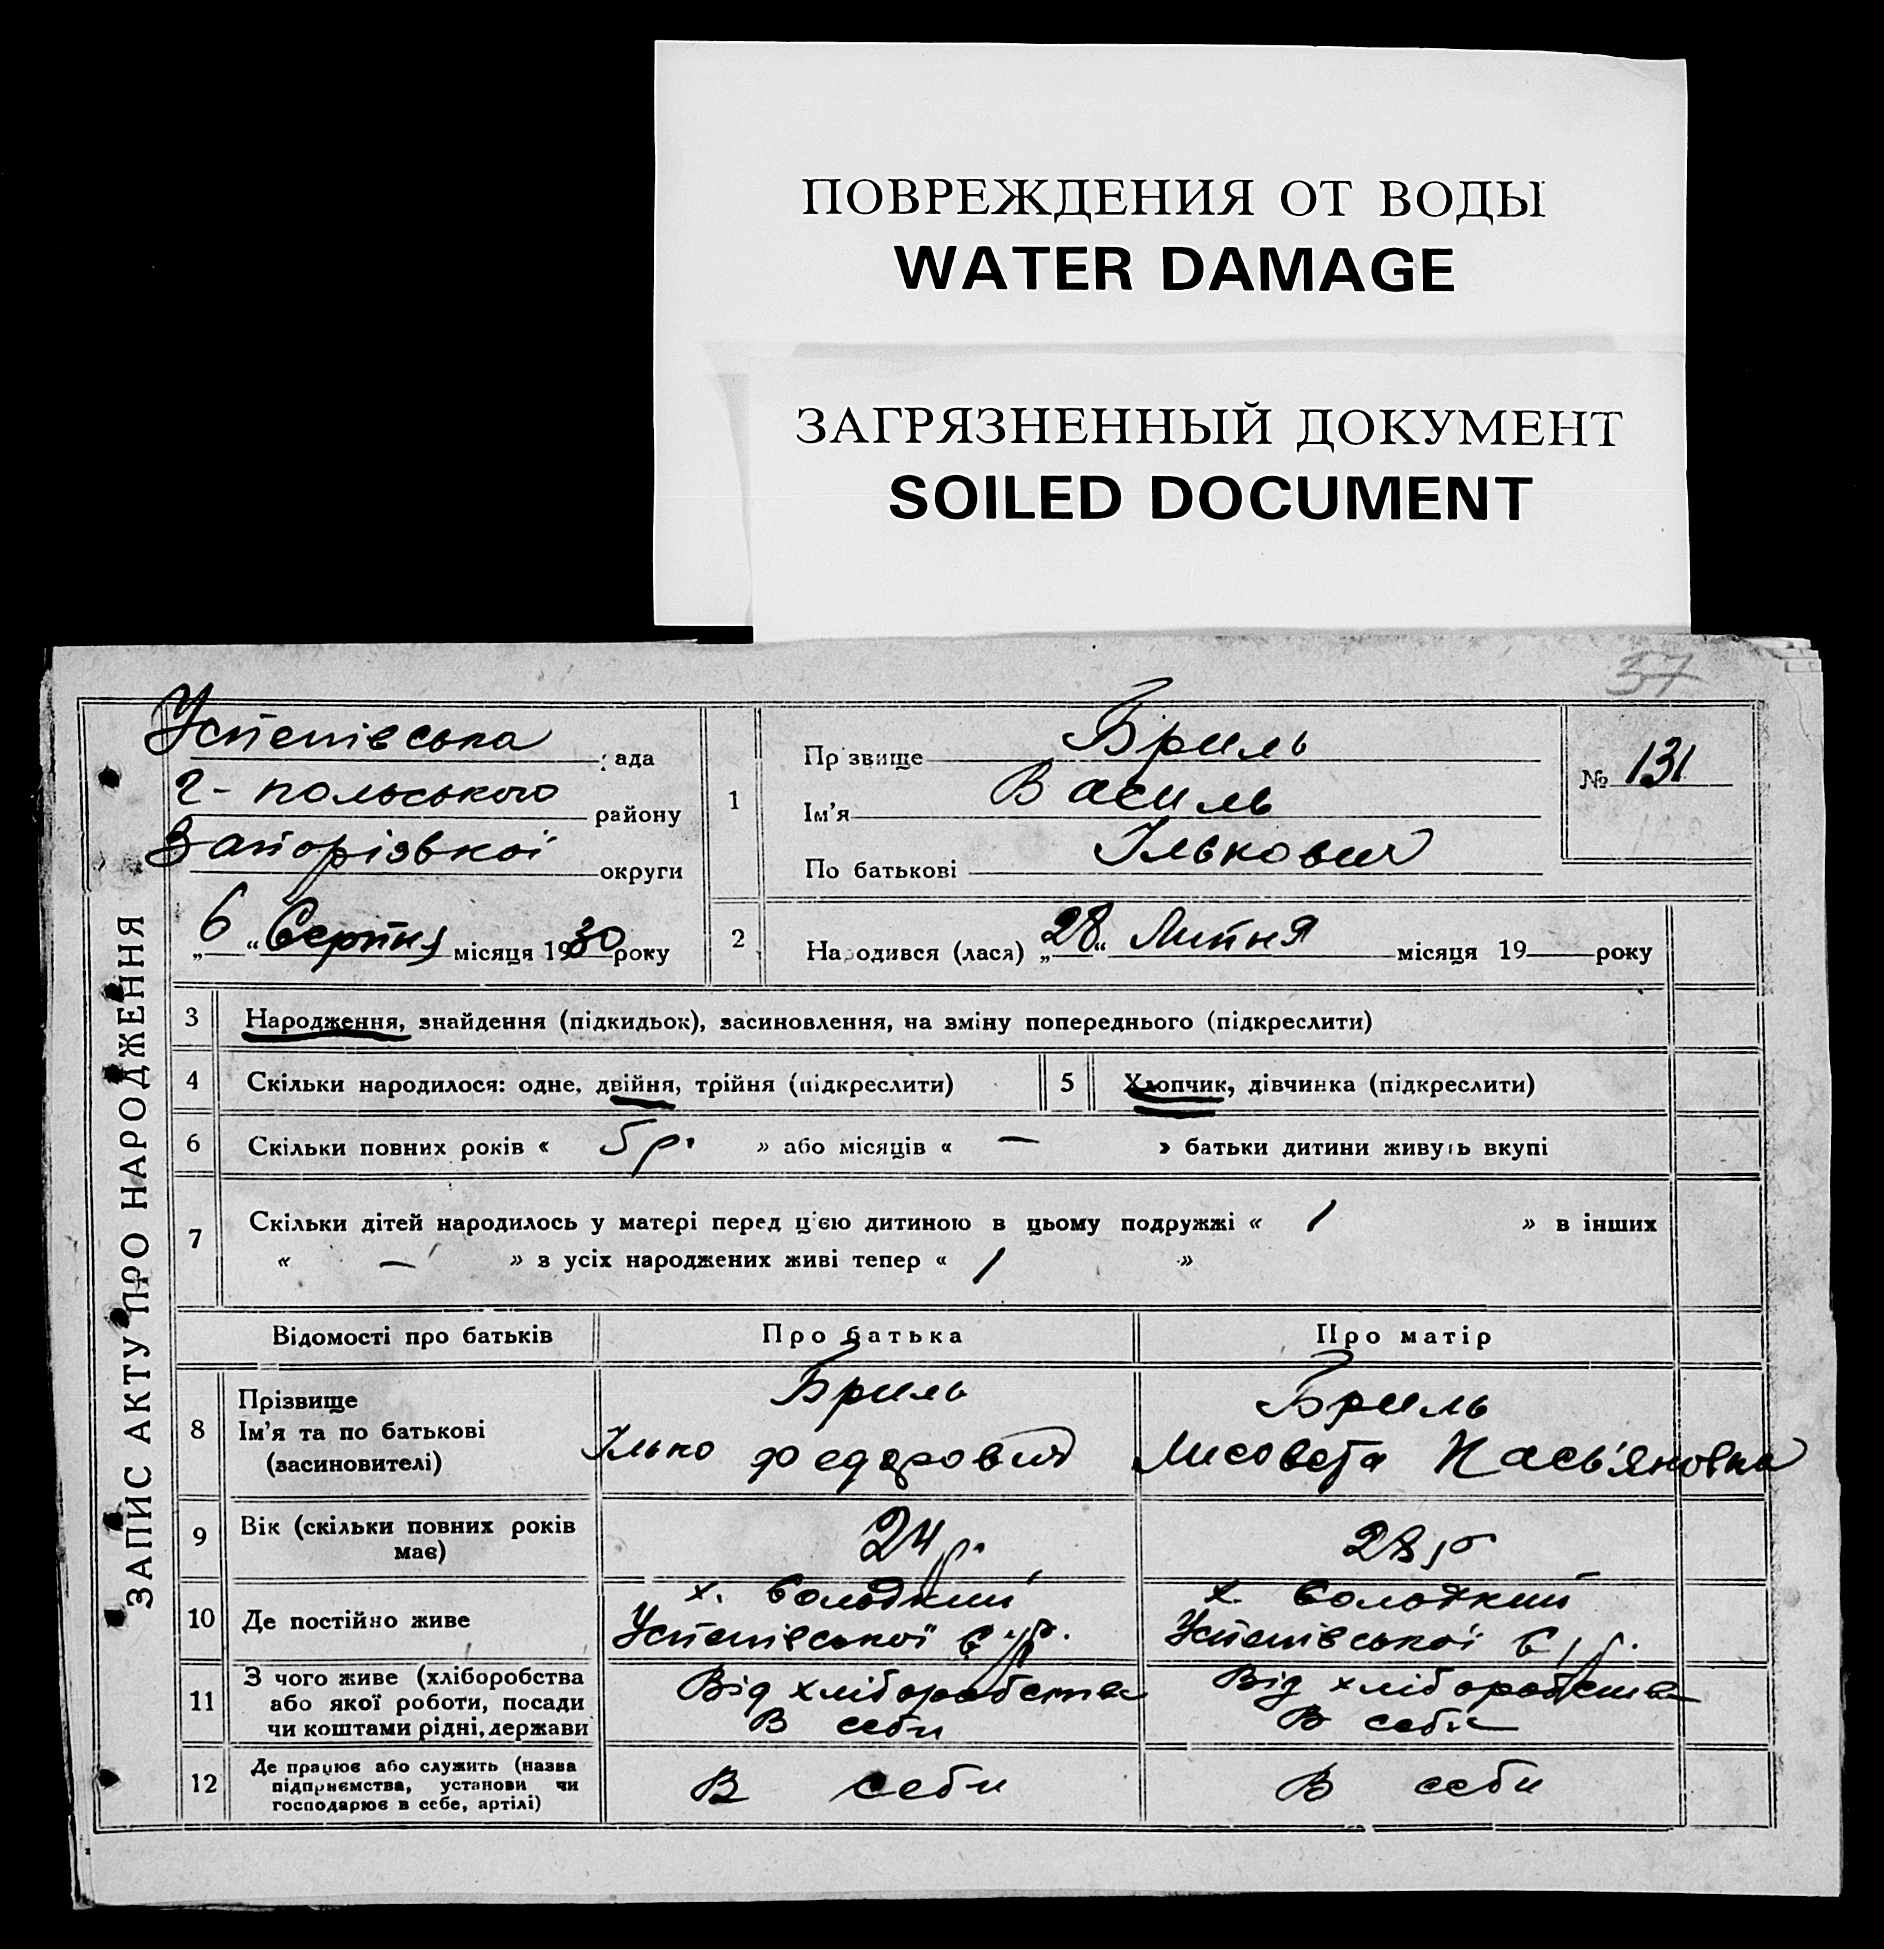 ПОВРЕЖДЕНИЯ ОТ ВОДЫ
WATER DAMAGE
ЗАГРЯЗНЕННЫЙ ДОКУМЕНТ
SOILED DOCUMENT
57
ЗАПИС АКТУ ПРО НАРОДЖЕННЯ
Успенівська рада
Г-польського району
Запорізької округи
„6“ Серпня місяця 1930 року
1
Прізвище Бриль
Ім'я Василь
По батькові Ількович
№ 131
2 Народився (лася) „28“ Липня місяця 19 року
3 Народження, знайдення (підкидьок), засиновлення, на зміну попереднього (підкреслити)
4 Скільки народилося: одне, двійня, трійня (підкреслити) 5 Хлопчик, дівчинка (підкреслити)
6 Скільки повних років « 5 р. » або місяців « — » батьки дитини живуть вкупі
7 Скільки дітей народилось у матері перед цією дитиною в цьому подружжі « 1 » в інших
« — » з усіх народжених живі тепер « 1 »
Відомості про батьків Про батька Про матір
8 Прізвище Бриль Бриль
Ім'я та по батькові Ілько Федорович Лисовета Касьяновна
(засиновителі)
9 Вік (скільки повних років має) 24 р. 28 р
10 Де постійно живе х. Солодкий х. Солодкий
Успенівської с/р. Успенівської с/р.
11 З чого живе (хліборобства Від хліборобства Від хліборобства
або якої роботи, посади В себи В себи
чи коштами рідні, держави
12 Де працює або служить (назва В себи В себи
підприємства, установи чи
господарює в себе, артілі)